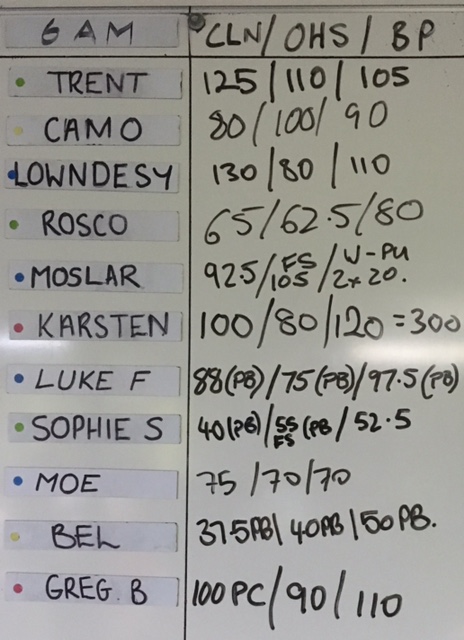 6 AM CLN/OHS/BP
TRENT 125/110/105
CAMO 80/100/90
LOWNDESY 130/80/110
ROSCO 65/62.5/80
MOSLAR 92.5/FS 105/W-PU 2x20.
KARSTEN 100/80/120=300
LUKE F 88(PB)/75(PB)/97.5(PB)
SOPHIE S 40(PB)/55 FS (PB/52.5
MOE 75/70/70
BEL 37.5PB/40PB/50PB.
GREG. B 100PC/90/110